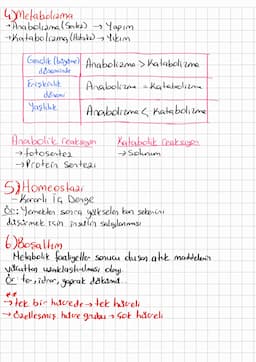 4) Metabolizma
→ Anabolizma (Sentez) → Yapım
→ Katabolizma (Hidroliz) → Yıkım
Gençlik (büyüme) döneminde Anabolizma > Katabolizma
Erişkinlik dönemi Anabolizma = Katabolizma
Yaşlılık Anabolizma < Katabolizma
Anabolik reaksiyon Katabolik reaksiyon
→ fotosentez → Solunum
→ Protein Sentezi
5) Homeostazi
- Kararlı İç Denge
Ör: Yemekten sonra yükselen kan şekerini
düşürmek için insülin salgılanması
6) Boşaltım
Metabolik faaliyetler sonucu oluşan atık maddelerin
vücuttan uzaklaştırılması olayı.
Ör: ter, idrar, yaprak dökümü...
**
→ tek bir hücrede → tek hücreli
→ özelleşmiş hücre grubu → çok hücreli